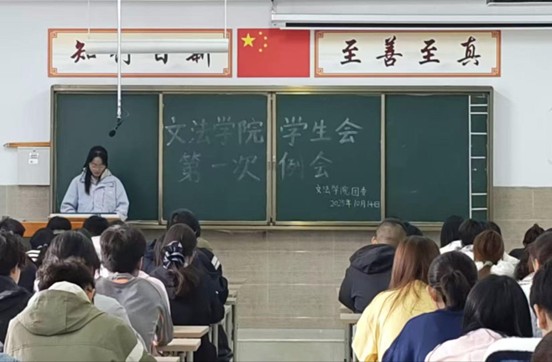 知行日新
至善至真
文法学院 学生会
第一次 例会
文法学院团委
10月14日